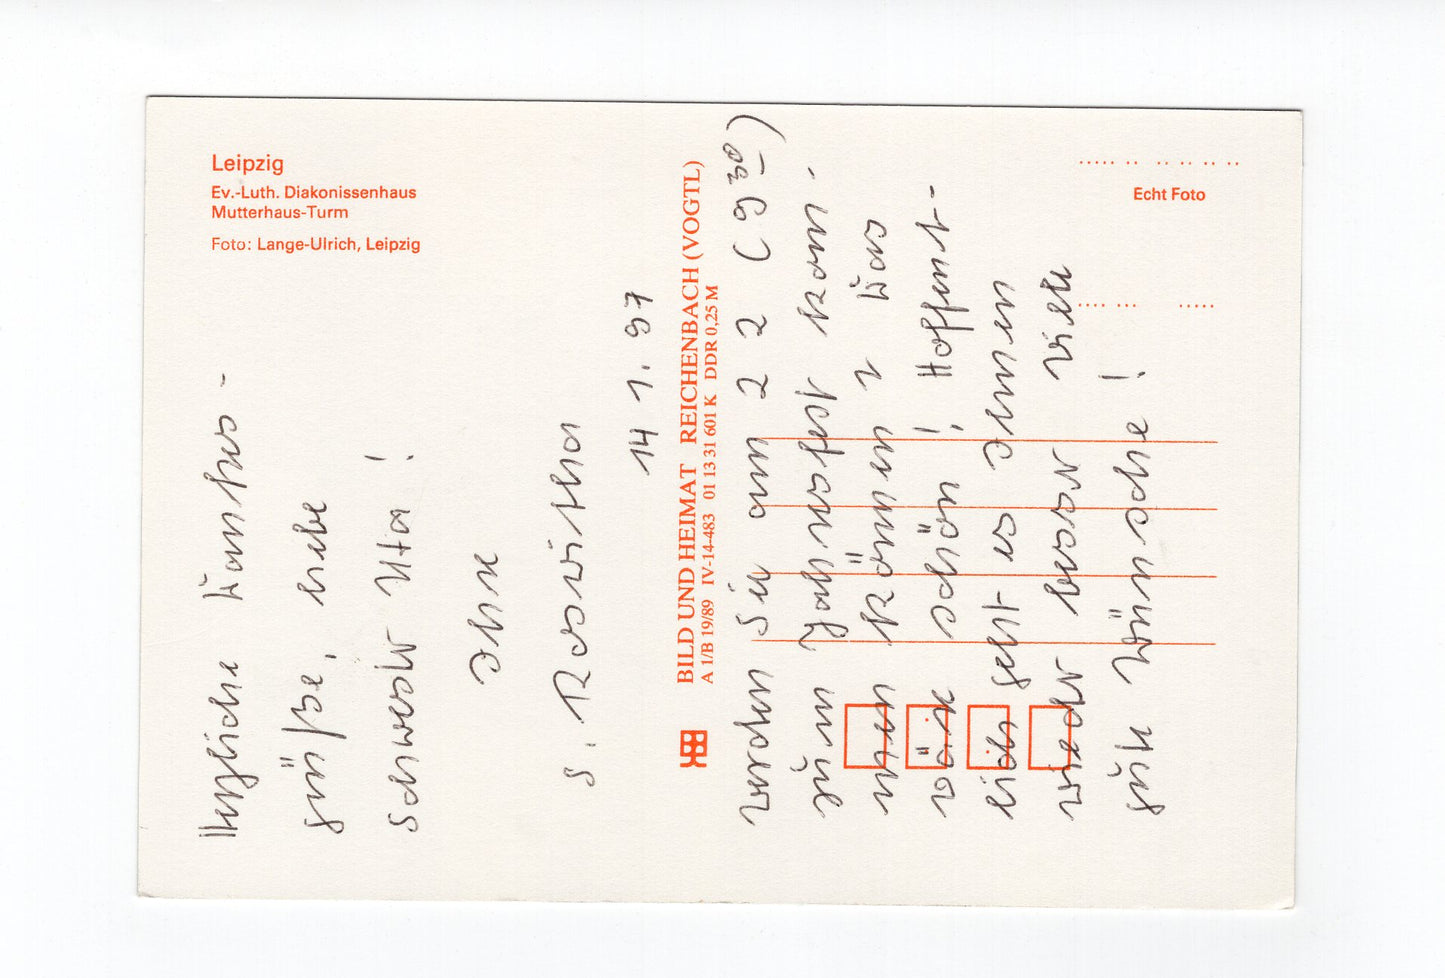 Leipzig
Ev.-Luth. Diakonissenhaus
Mutterhaus-Turm
Foto: Lange-Ulrich, Leipzig
Herzliche Dankes-
grüße, liebe
Schwester Uta!
Ihre
S. Roswitha
14 1. 97
BILD UND HEIMAT REICHENBACH (VOGTL)
A 1/B 19/89 IV-14-483 01 13 31 601 K DDR 0,25 M
Echt Foto
werden Sie am 22 (9 30)
zum Jahresfest kom-
men können? Das
wäre schön! Hoffent-
lich geht es Ihnen
wieder besser Viele
gute Wünsche!